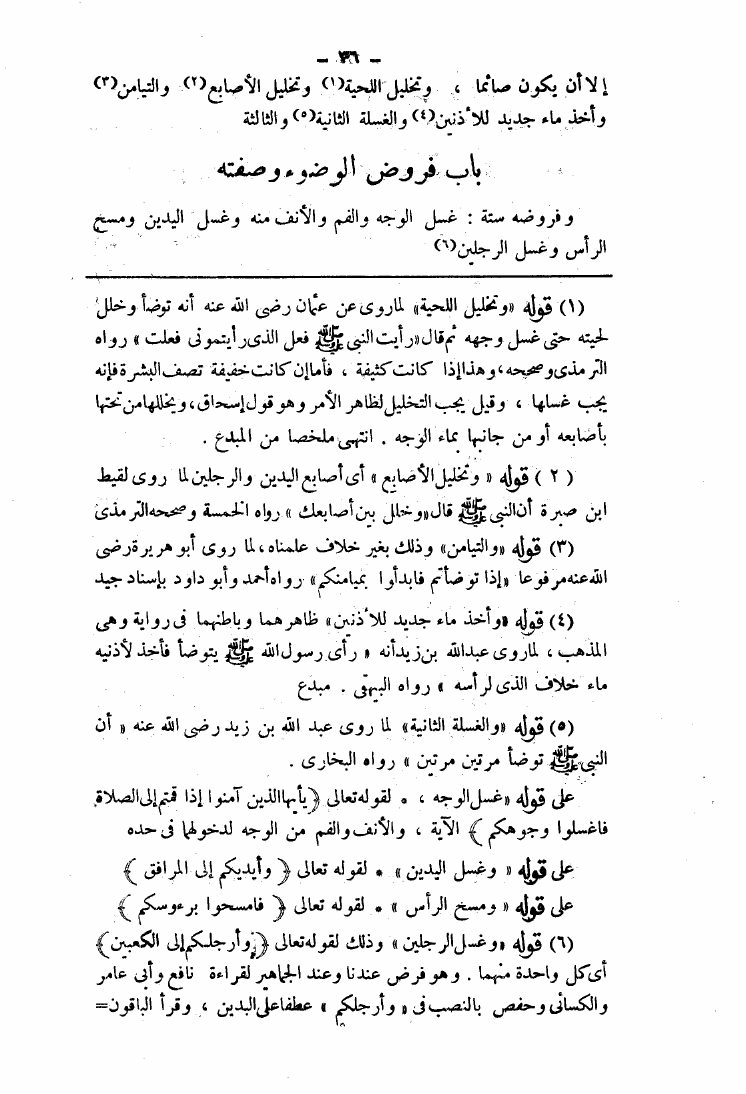 - ٣٦ -
إلا أن يكون صائما ، وتخليل اللحية(١) وتخليل الأصابع(٢) والتيامن(٣)
وأخذ ماء جديد للأذنين(٤) والغسلة الثانية(٥) والثالثة
باب فروض الوضوء وصفته
وفروضه ستة : غسل الوجه والفم والأنف منه وغسل اليدين ومسح
الرأس وغسل الرجلين(٦)
(١) قوله «وتخليل اللحية» لما روى عن عثمان رضى الله عنه أنه توضأ وخلل
لحيته حتى غسل وجهه ثم قال «رأيت النبى ﷺ فعل الذى رأيتمونى فعلت» رواه
الترمذى وصححه، وهذا إذا كانت كثيفة ، فأما إن كانت خفيفة تصف البشرة فإنه
يجب غسلها ، وقيل يجب التخليل لظاهر الأمر وهو قول إسحاق، ويخللها من تحتها
بأصابعه أو من جانبها بماء الوجه . انتهى ملخصا من المبدع .
(٢) قوله « وتخليل الأصابع » أى أصابع اليدين والرجلين لما روى لقيط
ابن صبرة أن النبى ﷺ قال «وخلل بين أصابعك » رواه الخمسة وصححه الترمذى
(٣) قوله «والتيامن» وذلك بغير خلاف علمناه، لما روى أبو هريرة رضى
الله عنه مرفوعا «إذا توضأتم فابدأوا بميامنكم» رواه أحمد وأبو داود بإسناد جيد
(٤) قوله «وأخذ ماء جديد للأذنين» ظاهرهما وباطنهما فى رواية وهى
المذهب ، لما روى عبد الله بن زيد أنه « رأى رسول الله ﷺ يتوضأ فأخذ لأذنيه
ماء خلاف الذى لرأسه » رواه البيهقى . مبدع
(٥) قوله «والغسلة الثانية» لما روى عبد الله بن زيد رضى الله عنه « أن
النبى ﷺ توضأ مرتين مرتين » رواه البخارى .
على قوله «غسل الوجه ، * لقوله تعالى ﴿يأيها الذين آمنوا إذا قمتم إلى الصلاة
فاغسلوا وجوهكم﴾ الآية ، والأنف والفم من الوجه لدخولهما فى حده
على قوله « وغسل اليدين » * لقوله تعالى ﴿ وأيديكم إلى المرافق ﴾
على قوله « ومسح الرأس » * لقوله تعالى ﴿ فامسحوا برءوسكم ﴾
(٦) قوله «وغسل الرجلين» وذلك لقوله تعالى ﴿وأرجلكم إلى الكعبين﴾
أى كل واحدة منهما . وهو فرض عندنا وعند الجماهير لقراءة نافع وأبى عامر
والكسائى وحفص بالنصب فى « وأرجلكم » عطفا على اليدين ، وقرأ الباقون=